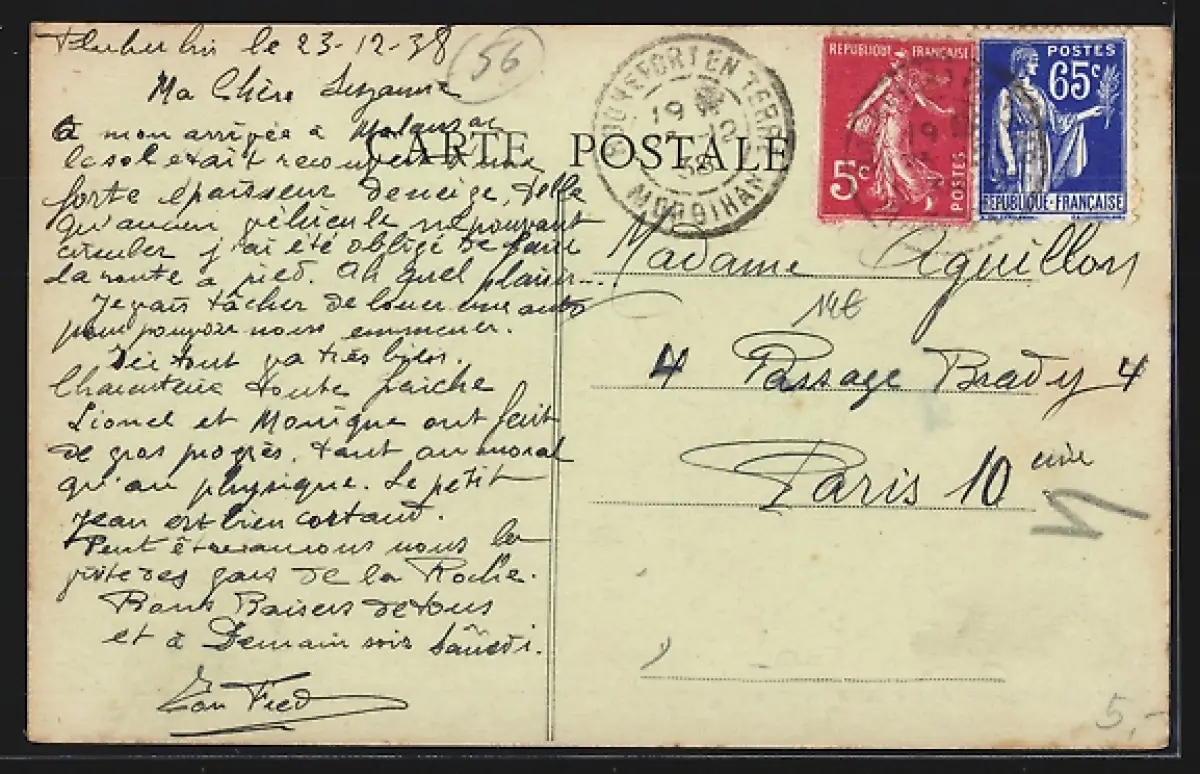 le 23-12-38
56
Ma Chère Suzanne
à mon arrivée à Malansac
le sol était recouvert d'une
forte épaisseur de neige, telle
qu'aucun véhicule ne pouvant
circuler j'ai été obligé de faire
la route à pied. Ah quel plaisir...
Je vais tâcher de louer une auto
pour pouvoir nous emmener.
Ici tout va très bien.
toute
Lionel et Monique ont fait
de gros progrès. tant au moral
qu'au physique. Le petit
Jean est bien costaud.
Peut être aurons nous la
gars de la Roche.
Bons Baisers de tous
et à Demain soir Samedi.
Ton Fred
CARTE POSTALE
ROCHEFORT EN TERRE
19
12
38
MORBIHAN
REPUBLIQUE FRANÇAISE
5c
POSTES
POSTES
65c
REPUBLIQUE-FRANÇAISE
Madame Aguillon
4 Passage Brady 4
Paris 10 eme
5,-